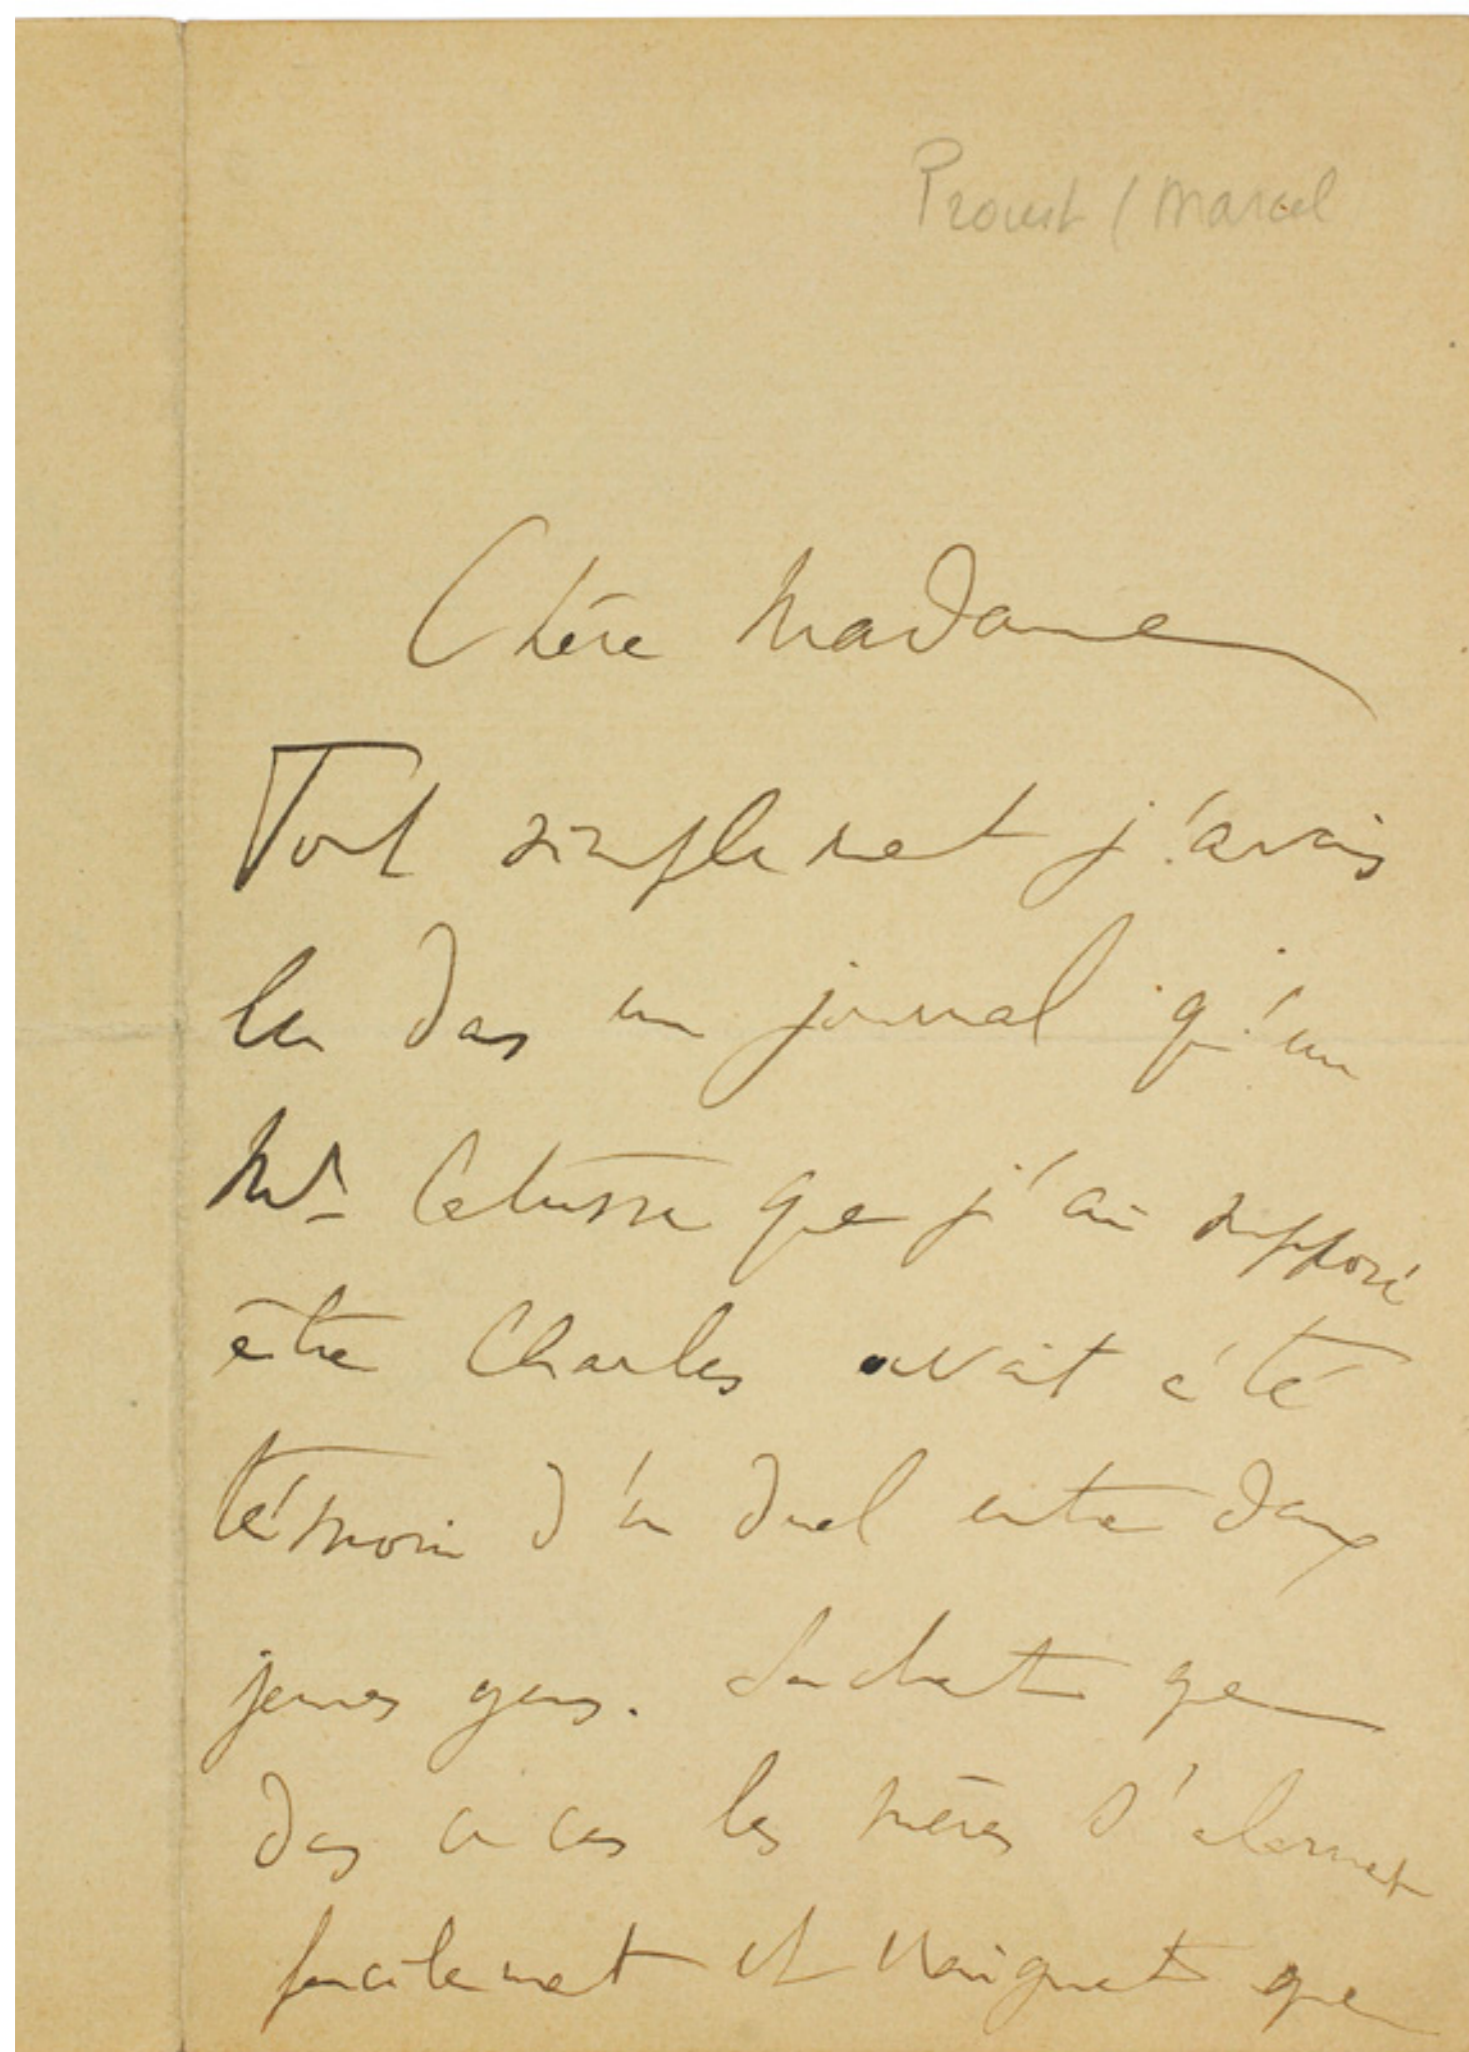 Proust (Marcel
Chère Madame
Tout simplement j'avais
lu dans un journal qu'un
Mr Catusse que j'ai supposé
être Charles avait été
témoin d'un duel entre deux
jeunes gens. Sachant que
dans ce cas les mères s'alarment
facilement et craignent que